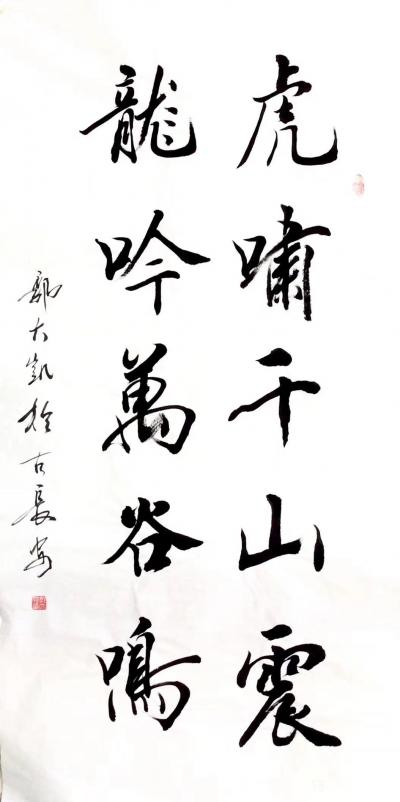 虎嘯千山震
龍吟萬谷鳴
郭大凱於古長安